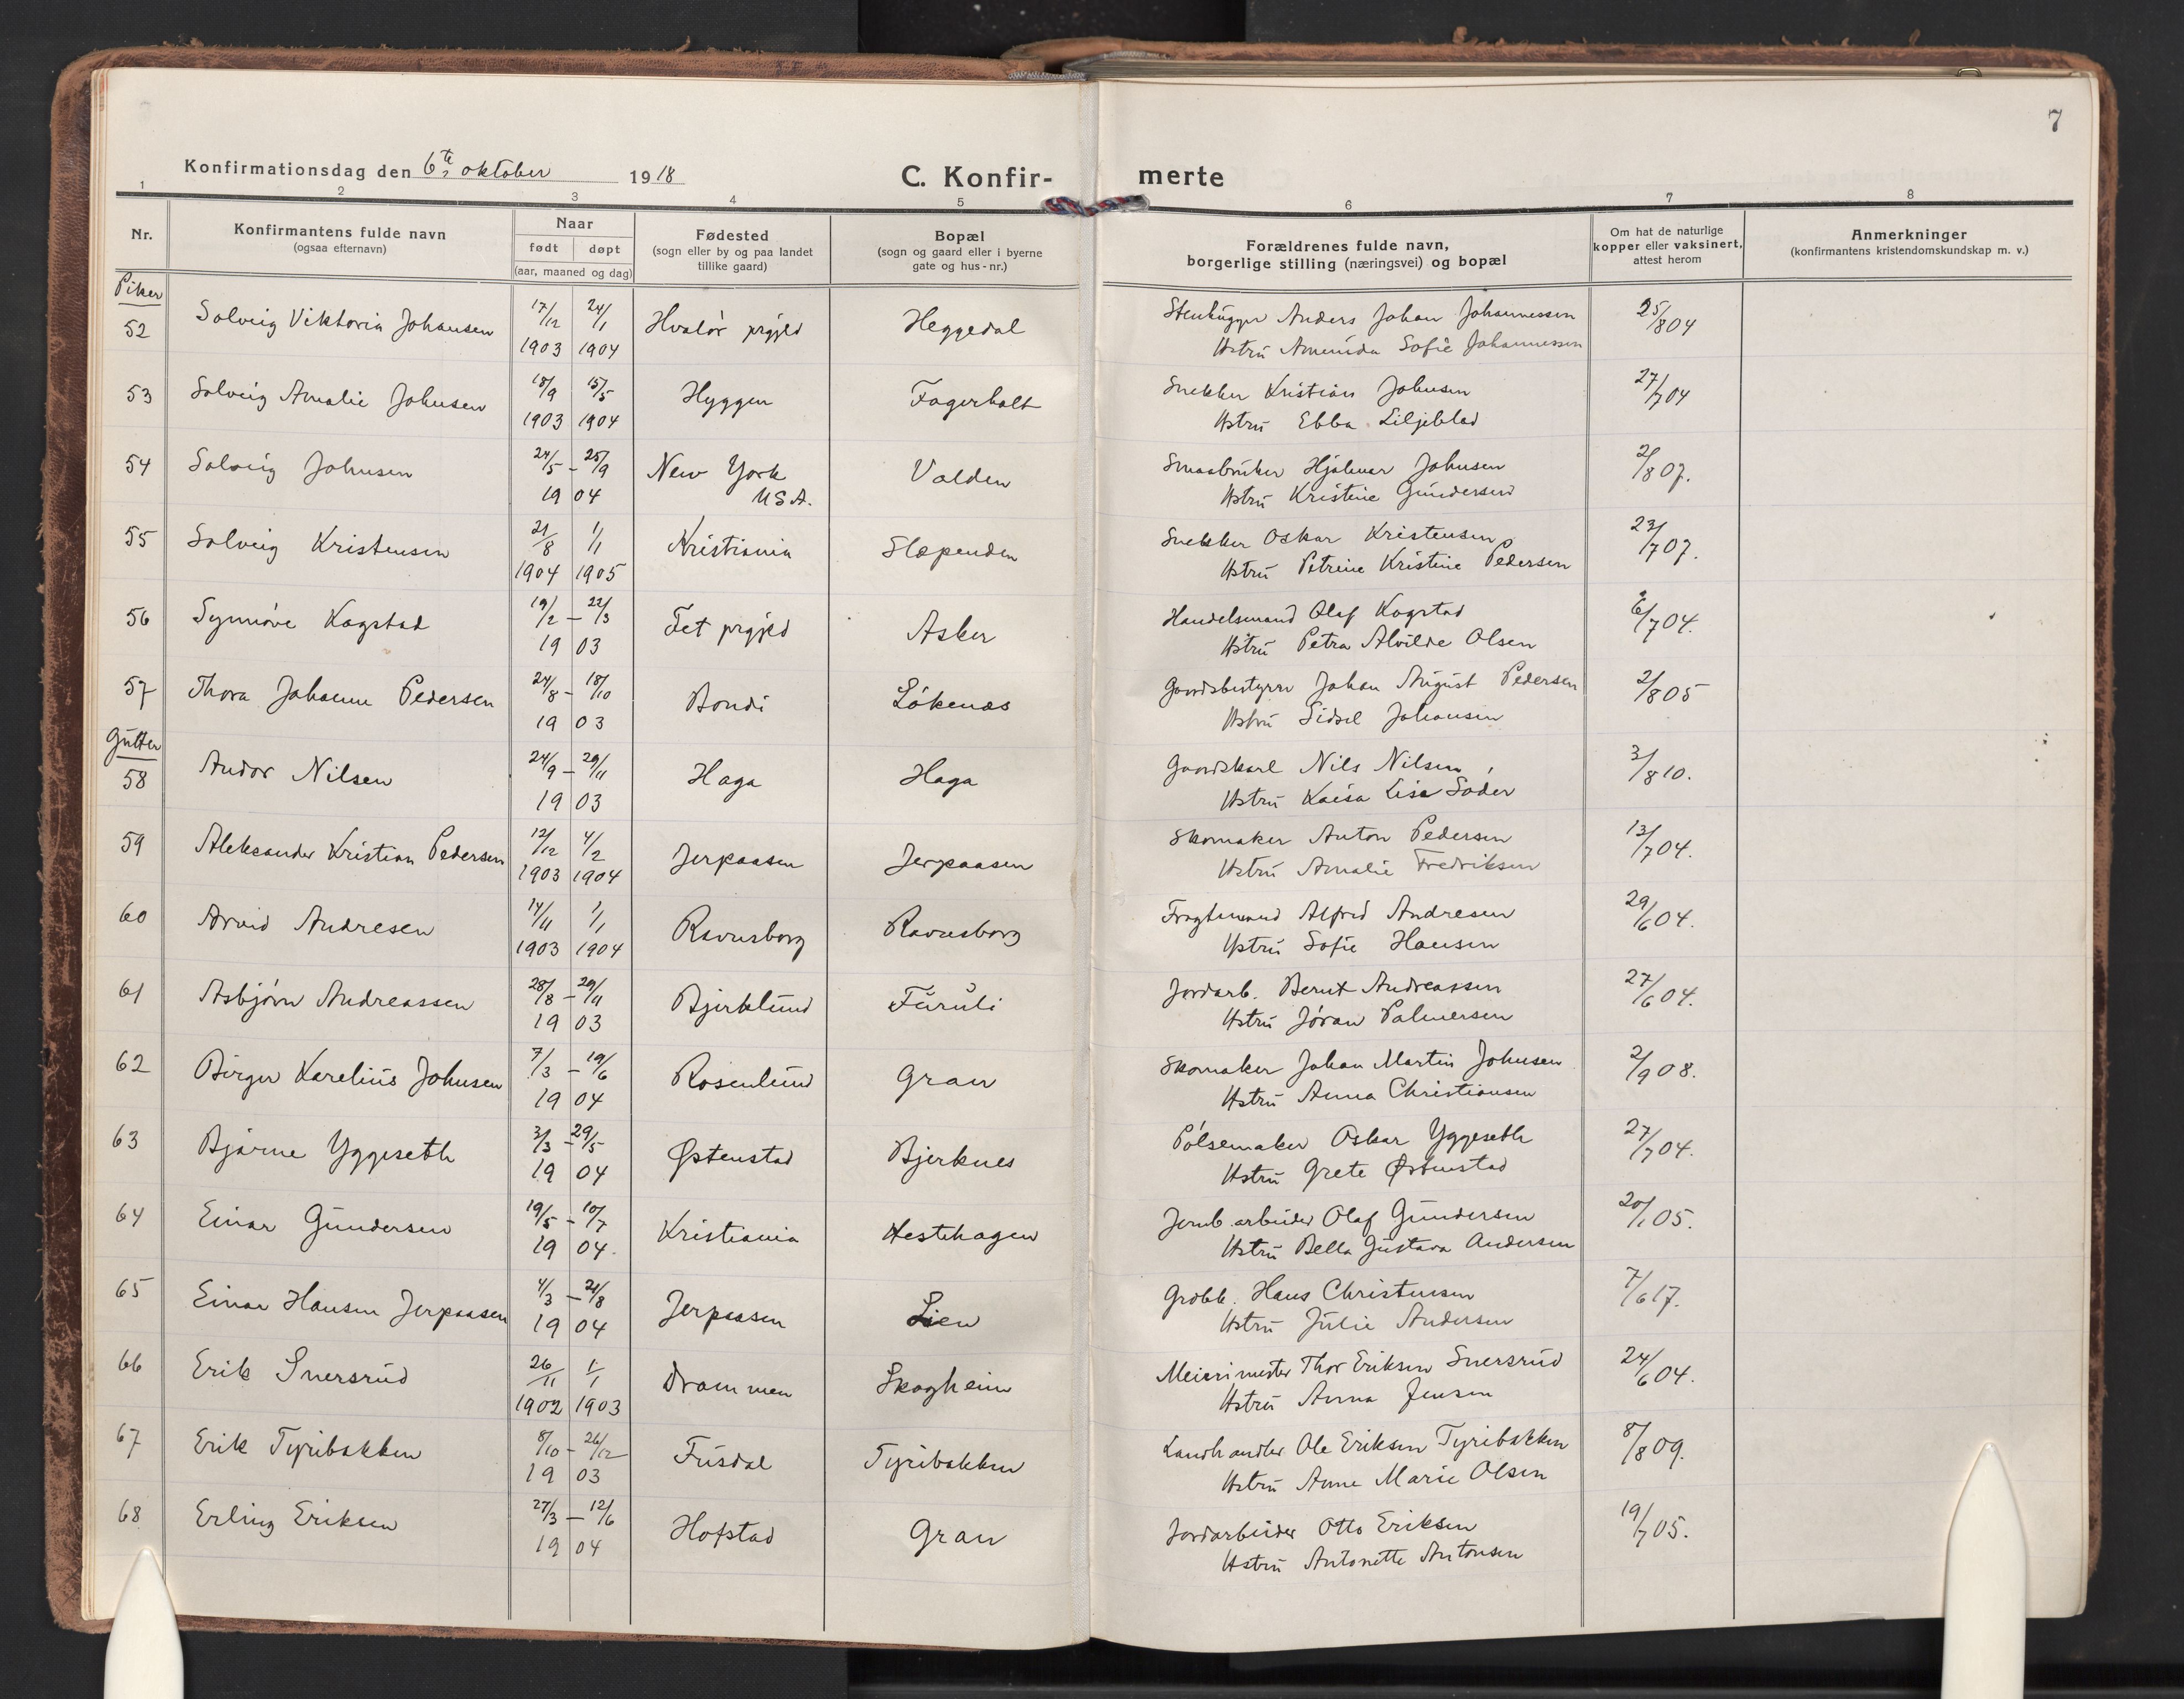 7
Konfirmationsdag den 6te oktober 1918
C. Konfirmerte
1 2 3 4 5 6 7 8
Nr.
Konfirmantens fulde navn
(ogsaa efternavn)
Naar
født døpt
(aar, maaned og dag)
Fødested
(sogn eller by og paa landet
tillike gaard)
Bopæl
(sogn og gaard eller i byerne
gate og hus-nr.)
Forældrenes fulde navn,
borgerlige stilling (næringsvei) og bopæl
Om hat de naturlige
kopper eller vaksinert,
attest herom
Anmerkninger
(konfirmantens kristendomskundskap m. v.)
Piker
52 Solveig Viktoria Johansen 17/12 1903 24/1 1904 Hvalør prgjld Heggedal Stenhugger Anders Johan Johannessen 25/8 04
Hstru Amunda Sofie Johannessen
53 Solveig Amalie Johnsen 18/9 1903 15/5 1904 Hyggen Fagerholt Snekker Kristian Johnsen 27/7 04
Hstru Ebba Liljeblad
54 Solveig Johnsen 24/5 - 25/9 1904 New York U.S.A. Valden Smaabruker Hjalmar Johnsen 2/8 07.
Hstru Kristine Gundersen
55 Solveig Kristensen 21/8 1904 1/1 1905 Kristiania Slæpenden Snekker Oskar Kristensen 23/7 07.
Hstru Petrine Kristine Pedersen
56 Synnøve Kogstad 19/2 - 22/3 1903 Fet prgjld Asker Handelsmand Olaf Kogstad 6/7 04.
Hstru Petra Alvilde Olsen
57 Thora Johanne Pedersen 24/8 - 18/10 1903 Bondi Løkenes Gaardsbestyrer Johan August Pedersen 2/8 05
Hstru Sidsel Johansen
Gutter
58 Andor Nilsen 24/9 - 29/11 1903 Haga Haga Gaardskarl Nils Nilsen 3/8 10.
Hstru Kaisa Lisa Soder
59 Aleksander Kristian Pedersen 12/12 1903 4/2 1904 Jerpaasen Jerpaasen Skomaker Anton Pedersen 13/7 04.
Hstru Amalie Fredriksen
60 Arvid Andresen 14/11 1903 1/1 1904 Ravnsborg Ravnsborg Fragtmand Alfred Andresen 29/6 04.
Hstru Sofie Hansen
61 Asbjørn Andreassen 28/8 - 29/11 1903 Bjerklund Furuli Jordarb. Bernt Andreassen 27/6 04.
Hstru Jøran Palmersen
62 Birger Karelius Johnsen 7/3 - 19/6 1904 Rosenlund Gran Skomaker Johan Martin Johnsen 2/9 08.
Hstru Anna Christiansen
63 Bjarne Yggeseth 3/3 - 29/5 1904 Østenstad Bjerknes Pølsemaker Oskar Yggeseth 27/7 04.
Hstru Grete Østenstad
64 Einar Gundersen 19/5 - 10/7 1904. Kristiania Hestehagen Jernb.arbeider Olaf Gundersen 20/1 05.
Hstru Bella Gustava Andersen
65 Einar Hansen Jerpaasen 4/3 - 21/8 1904 Jerpaasen Lien Grdbk. Hans Christensen 7/6 17.
Hstru Julie Andersen
66 Erik Snersrud 26/11 1902 1/1 1903 Drammen Skogheim Meierimester Thor Eriksen Snersrud 24/6 04.
Hstru Anna Jensen
67 Erik Tyribakken 8/10 - 26/12 1903 Fusdal Tyribakken Landhandler Ole Eriksen Tyribakken 8/8 09.
Hstru Anne Marie Olsen
68 Erling Eriksen 27/3 - 12/6 1904 Hofstad Gran Jordarbeider Otto Eriksen 19/7 05.
Hstru Antonette Antonsen